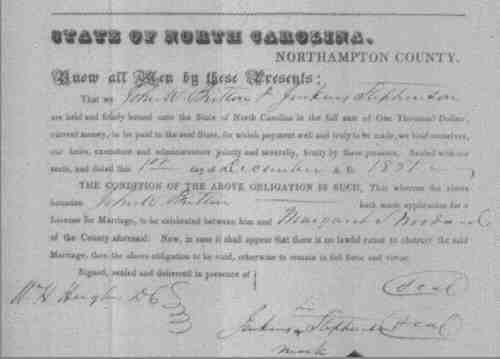 STATE OF NORTH CAROLINA.
NORTHAMPTON COUNTY.
Know all Men by these Presents:
That we John W Britton & Jenkins Stephenson
are held and firmly bound unto the State of North Carolina in the full sum of One Thousand Dollar,
current money, to be paid to the said State, for which payment well and truly to be made, we bind ourselves,
our heirs, executors and administrators jointly and severally, firmly by these presents. Sealed with our
seals, and dated this 1st day of December A. D. 1851
THE CONDITION OF THE ABOVE OBLIGATION IS SUCH, That whereas the above
bounden John W Britton hath made application for a
License for Marriage, to be celebrated between him and Margaret
of the County aforesaid: Now, in case it shall appear that there is no lawful cause to obstruct the said
Marriage, then the above obligation to be void, otherwise to remain in full force and virtue.
Signed, sealed and delivered in presence of
Seal
Wm H Hughes DC
his
Jenkins Stephenson Seal
mark